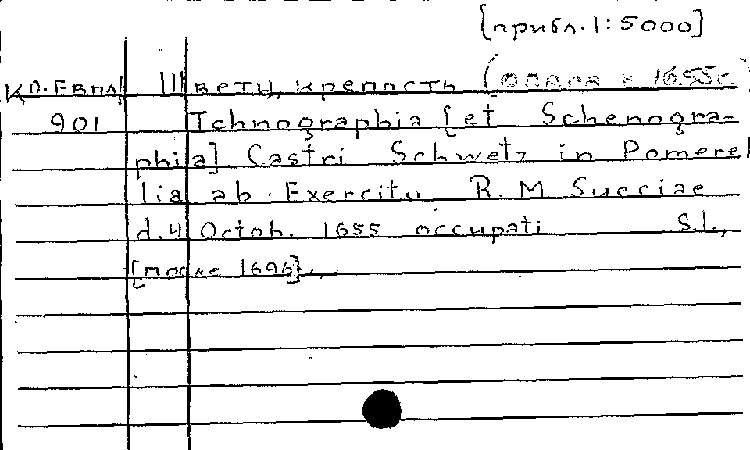 [прибл. 1:5000]
Шветц, крепость (осада в 1655г.)
901 Ichnographia [et Schenogra-
phia] Castri Schwetz in Pomerel
lia ab Exercitu R. M Sueciae
d. 4 Octob. 1655 occupati S.l.,
[после 1696].